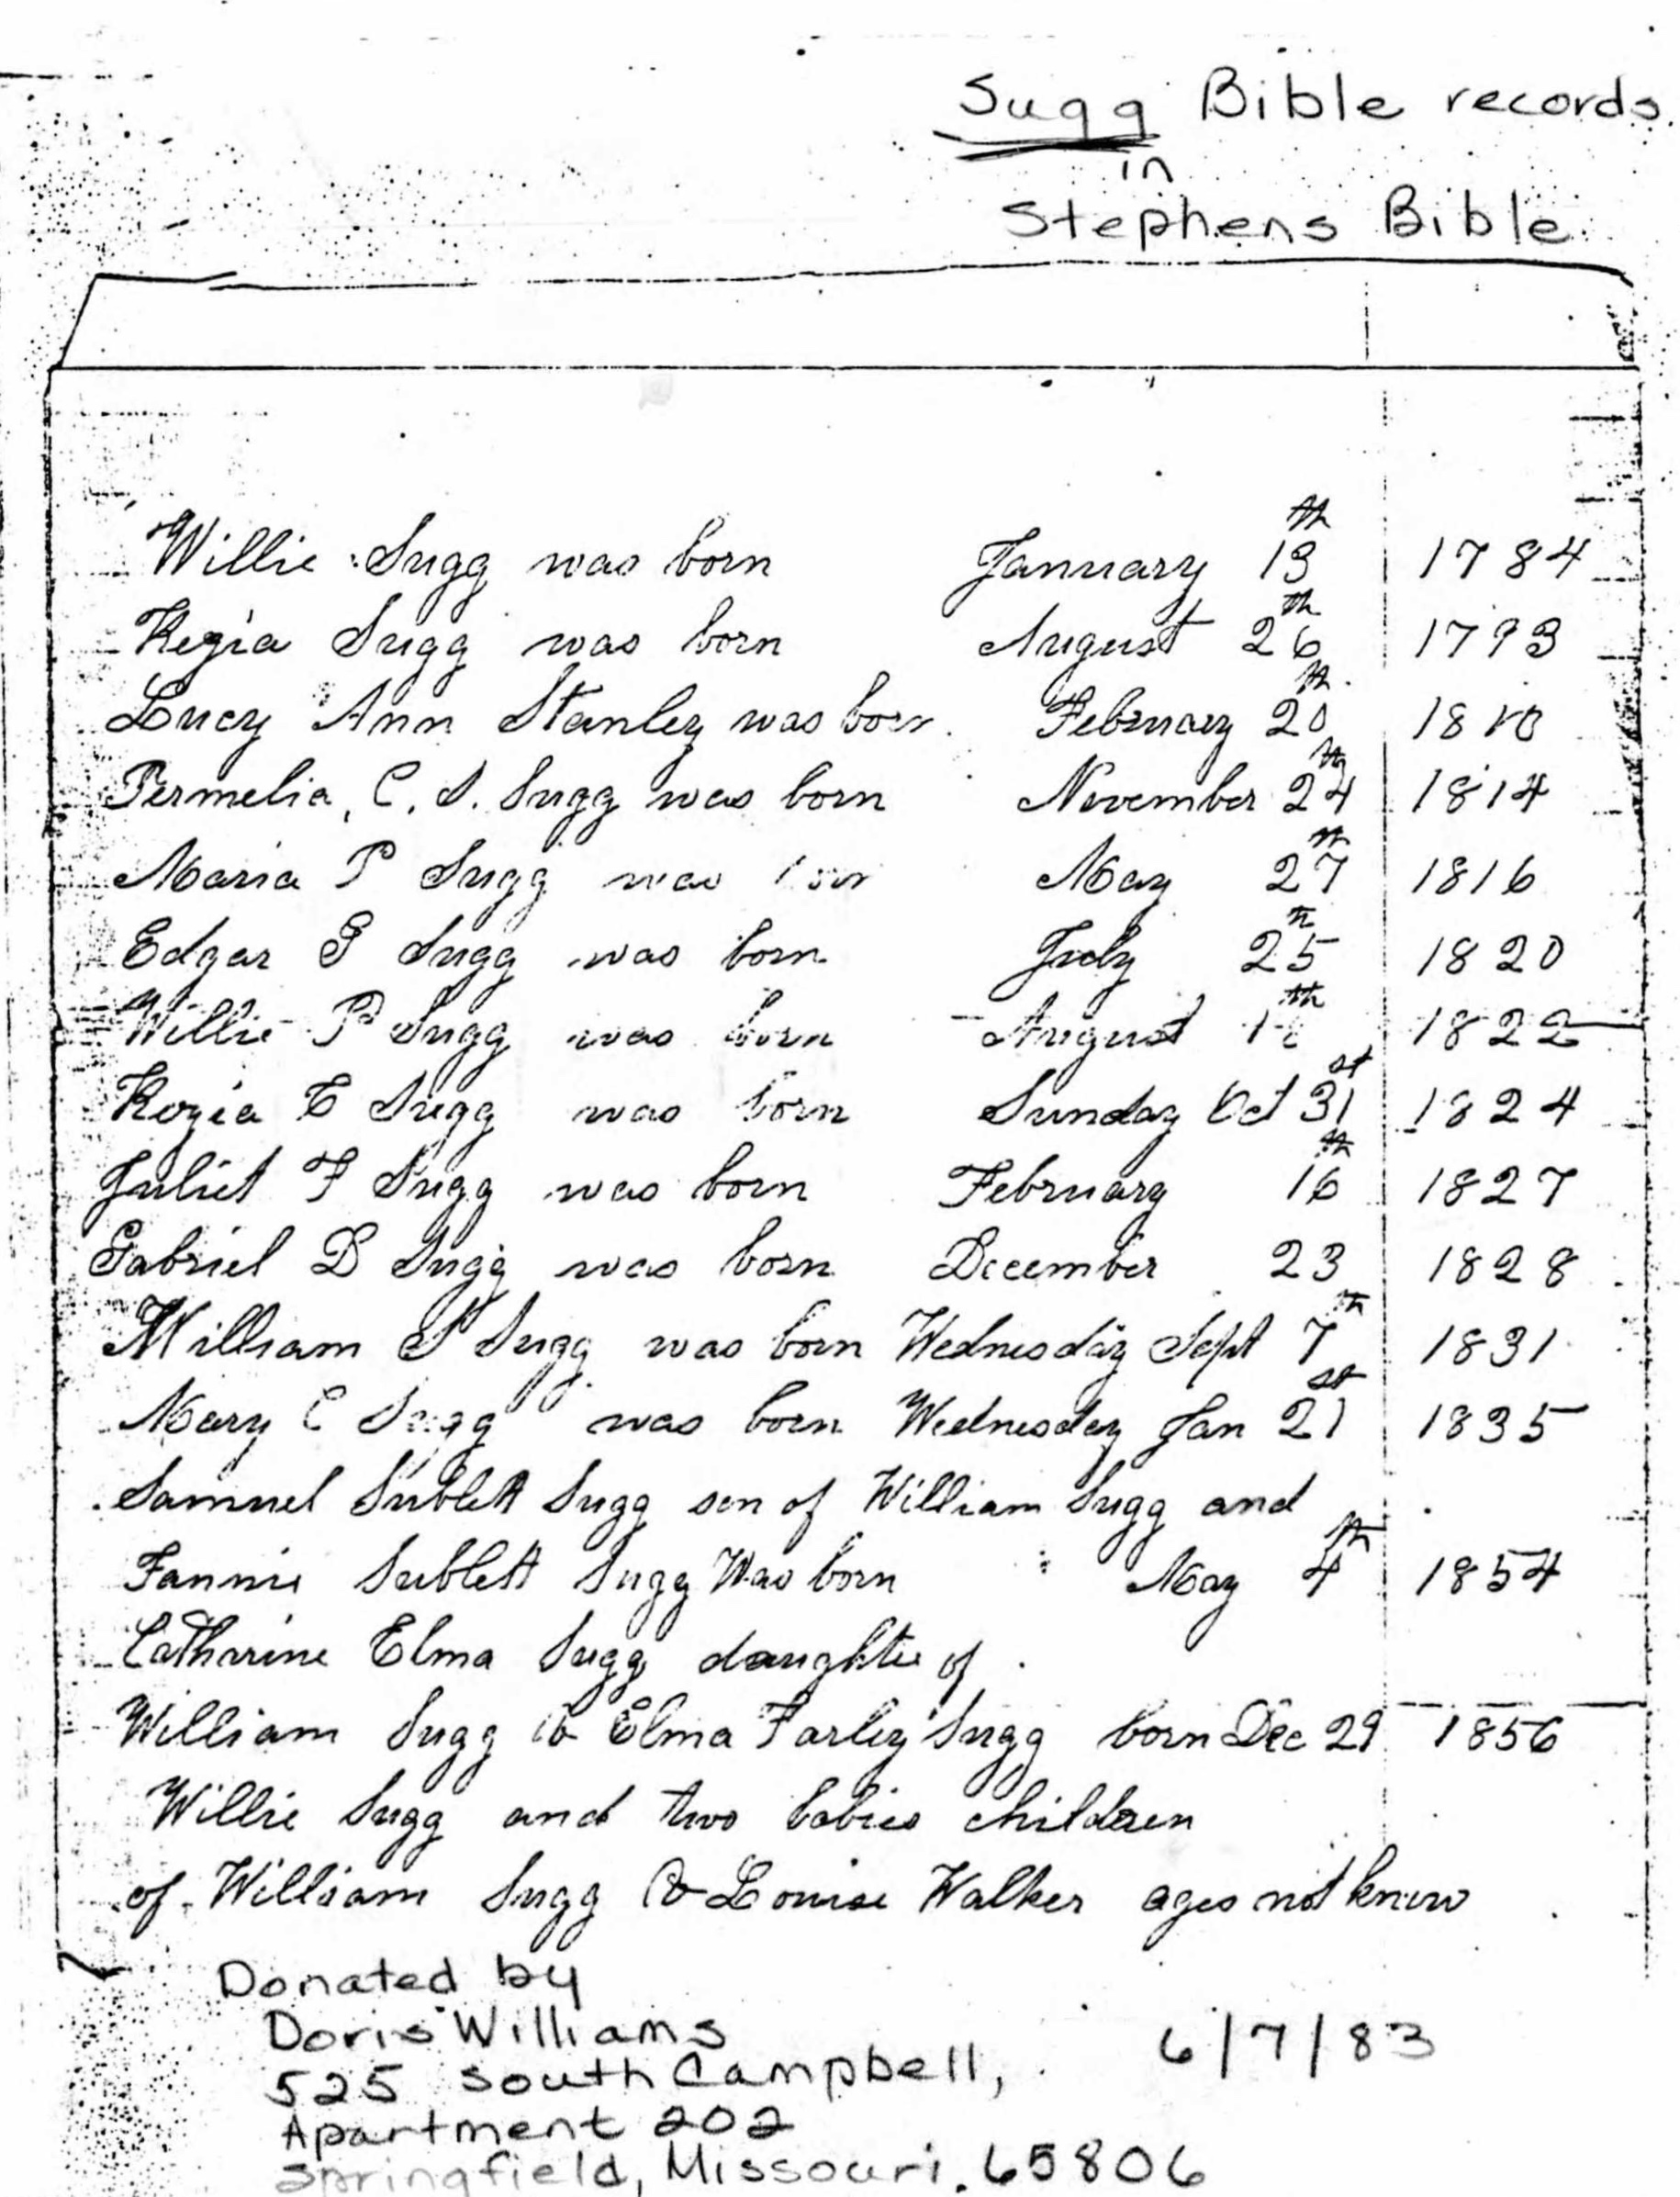 Sugg Bible records.
in
Stephens Bible
Willie Sugg was born January 13th 1784
Kezia Sugg was born August 26th 1793
Lucy Ann Stanley was born February 20th 1810
Permelia, C. S. Sugg was born November 24th 1814
Maria P Sugg was May 27th 1816
Edgar G Sugg was born July 25th 1820
Willie P Sugg was born August 1822
Kezia E Sugg was born Sunday Oct 31st 1824
Juliet F Sugg was born February 16th 1827
Gabriel D Sugg was born December 23 1828
William S Sugg was born Wednesday Sept 7th 1831
Mary C Sugg was born Wednesday Jan 21st 1835
Samuel Sublett Sugg son of William Sugg and
Fannie Sublett Sugg Was born May 4th 1854
Catharine Elma Sugg daughter of
William Sugg & Elma Farley Sugg born Dec 29 1856
Willie Sugg and two babies children
of William Sugg & Louise Walker ages not know
Donated by
Doris Williams 6/7/83
525 South Campbell,
Apartment 202
Springfield, Missouri. 65806